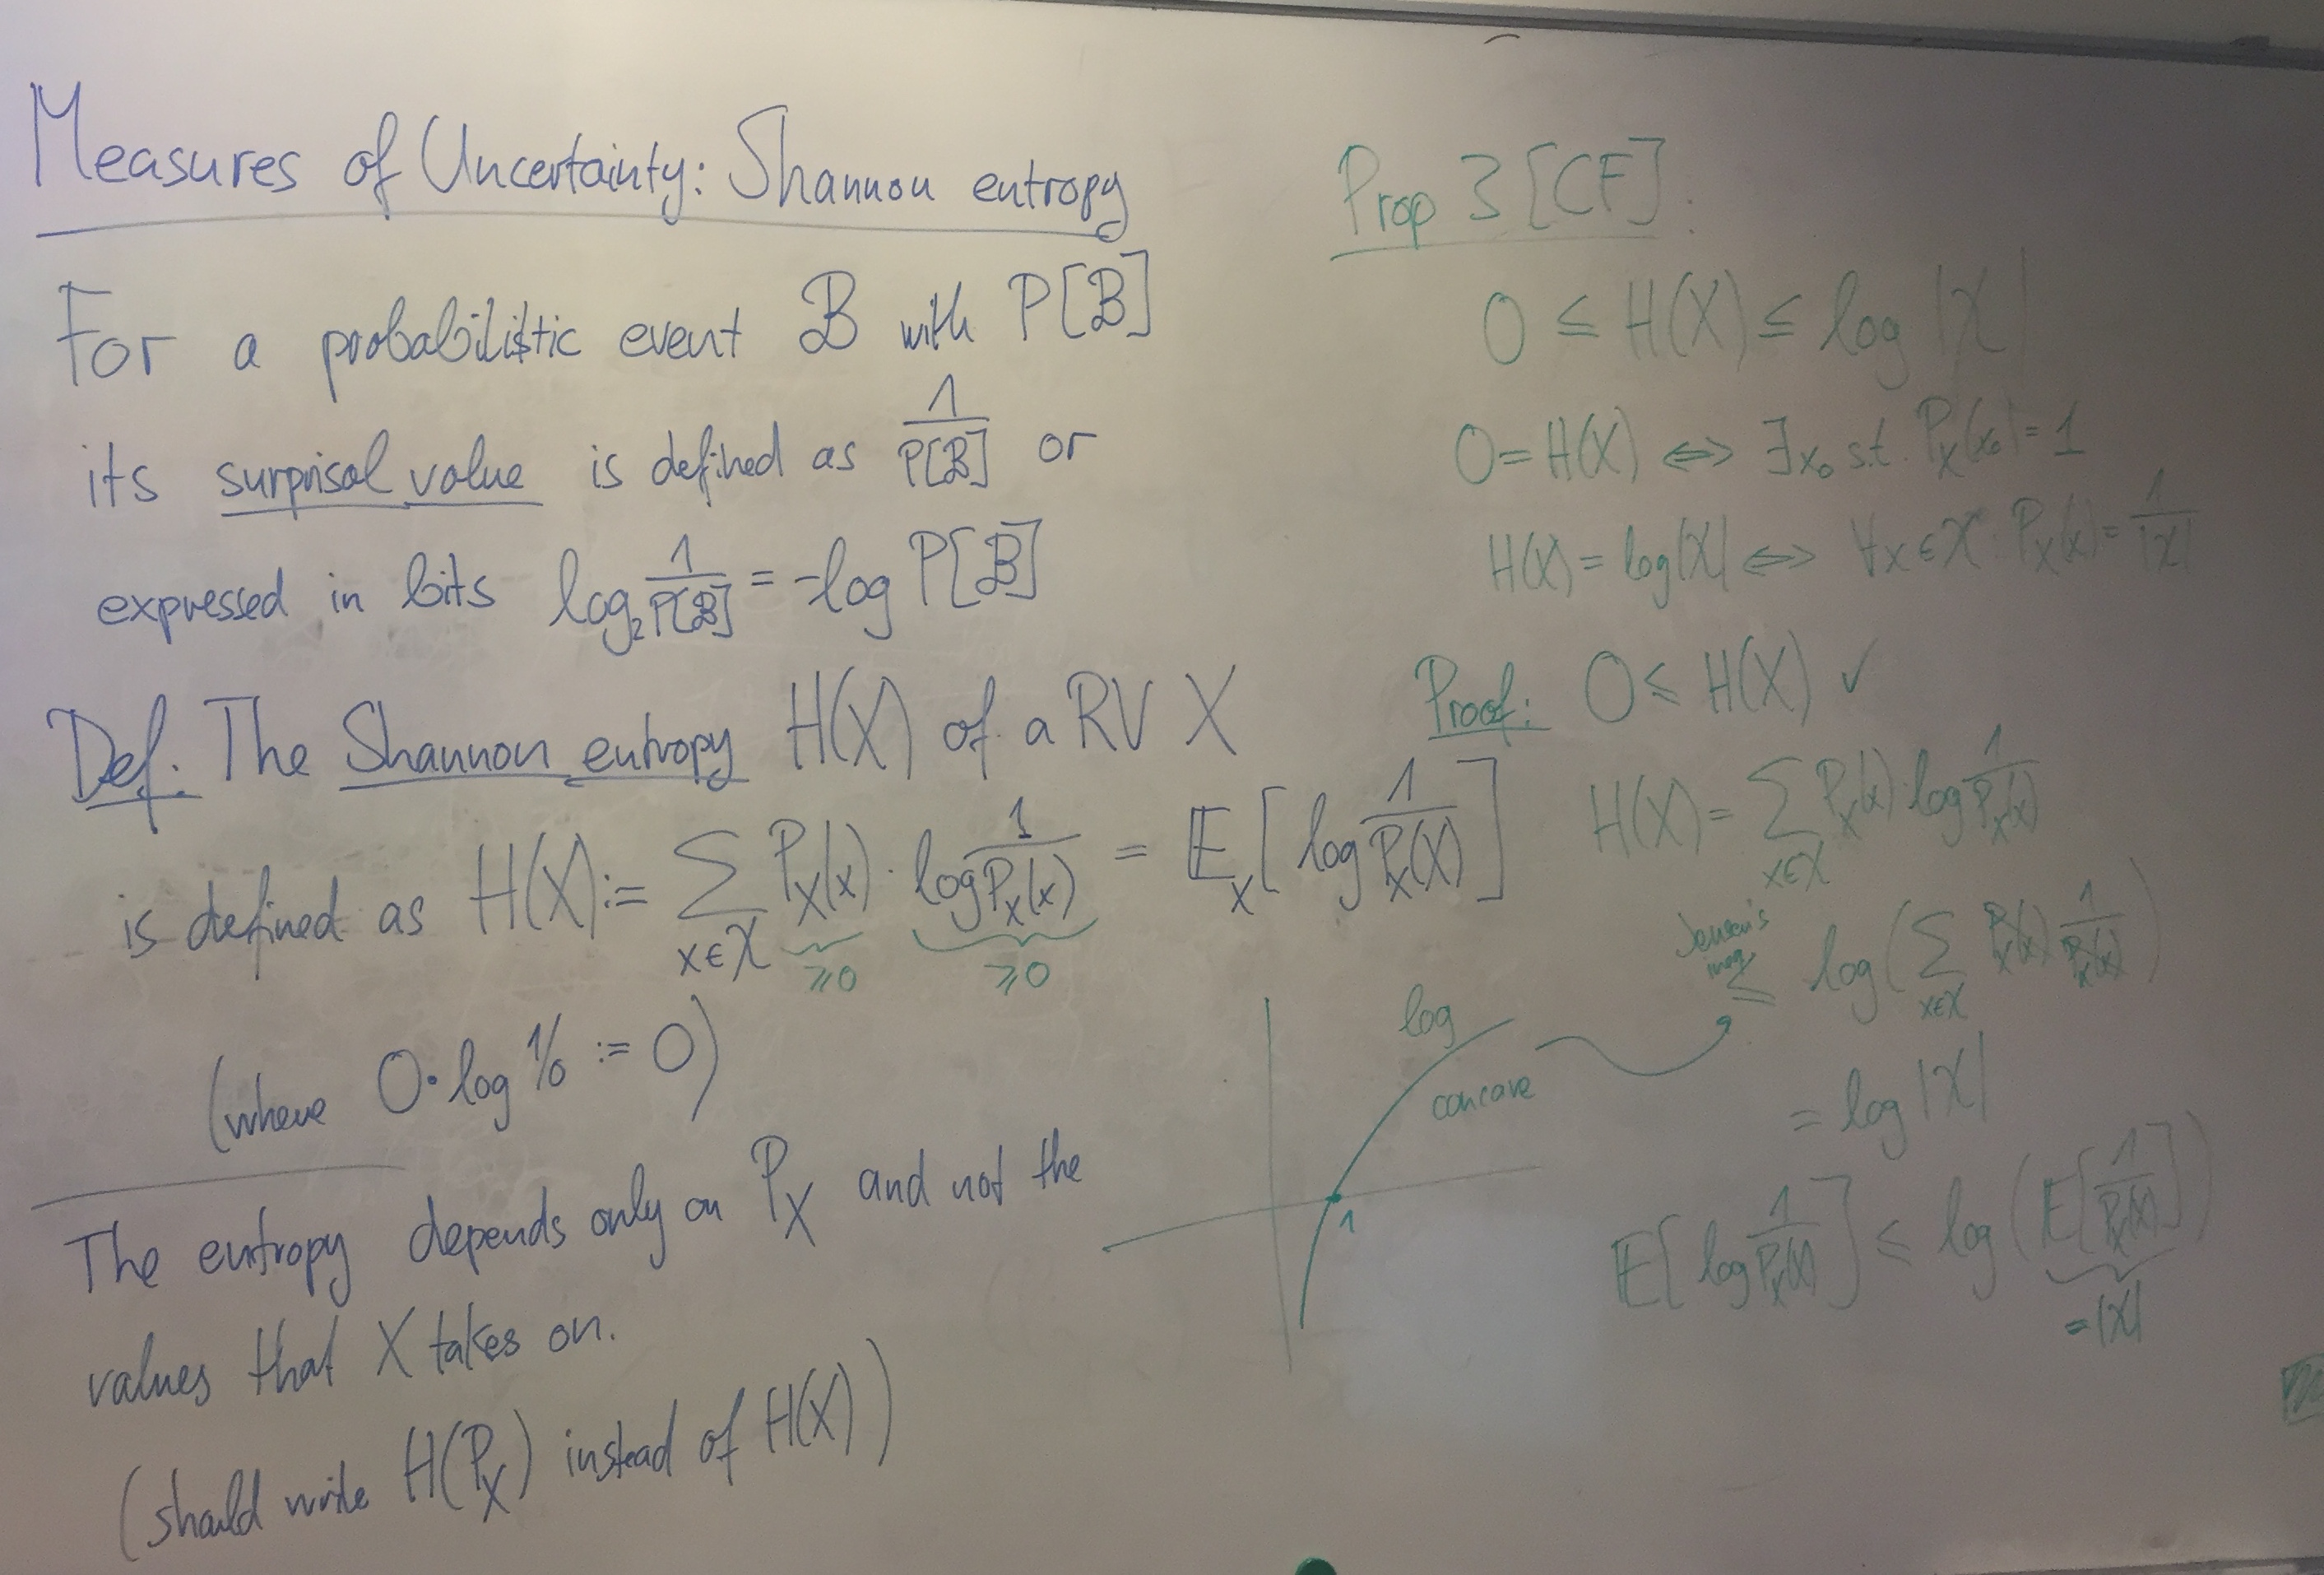 Measures of Uncertainty: Shannon entropy
For a probabilistic event B with P[B]
its surprisal value is defined as 1/P[B] or
expressed in bits log₂ 1/P[B] = -log P[B]
Def.: The Shannon entropy H(X) of a RV X
is defined as H(X) := ∑_{x∈𝒳} P_X(x) · log 1/P_X(x) = 𝔼_X[log 1/P_X(X)]
≥0 ≥0
(where 0·log 1/0 := 0)
The entropy depends only on P_X and not the
values that X takes on.
(should write H(P_X) instead of H(X))
Prop 3 [CF]:
0 ≤ H(X) ≤ log |𝒳|
0 = H(X) ⇔ ∃x₀ s.t. P_X(x₀) = 1
H(X) = log|𝒳| ⇔ ∀x∈𝒳: P_X(x) = 1/|𝒳|
Proof: 0 ≤ H(X) ✓
H(X) = ∑_{x∈𝒳} P_X(x) · log 1/P_X(x)
Jensen's
ineq.
≤ log(∑_{x∈𝒳} P_X(x) 1/P_X(x))
= log |𝒳|
𝔼[log 1/P_X(X)] ≤ log(𝔼[1/P_X(X)])
= |𝒳|
log
concave
1